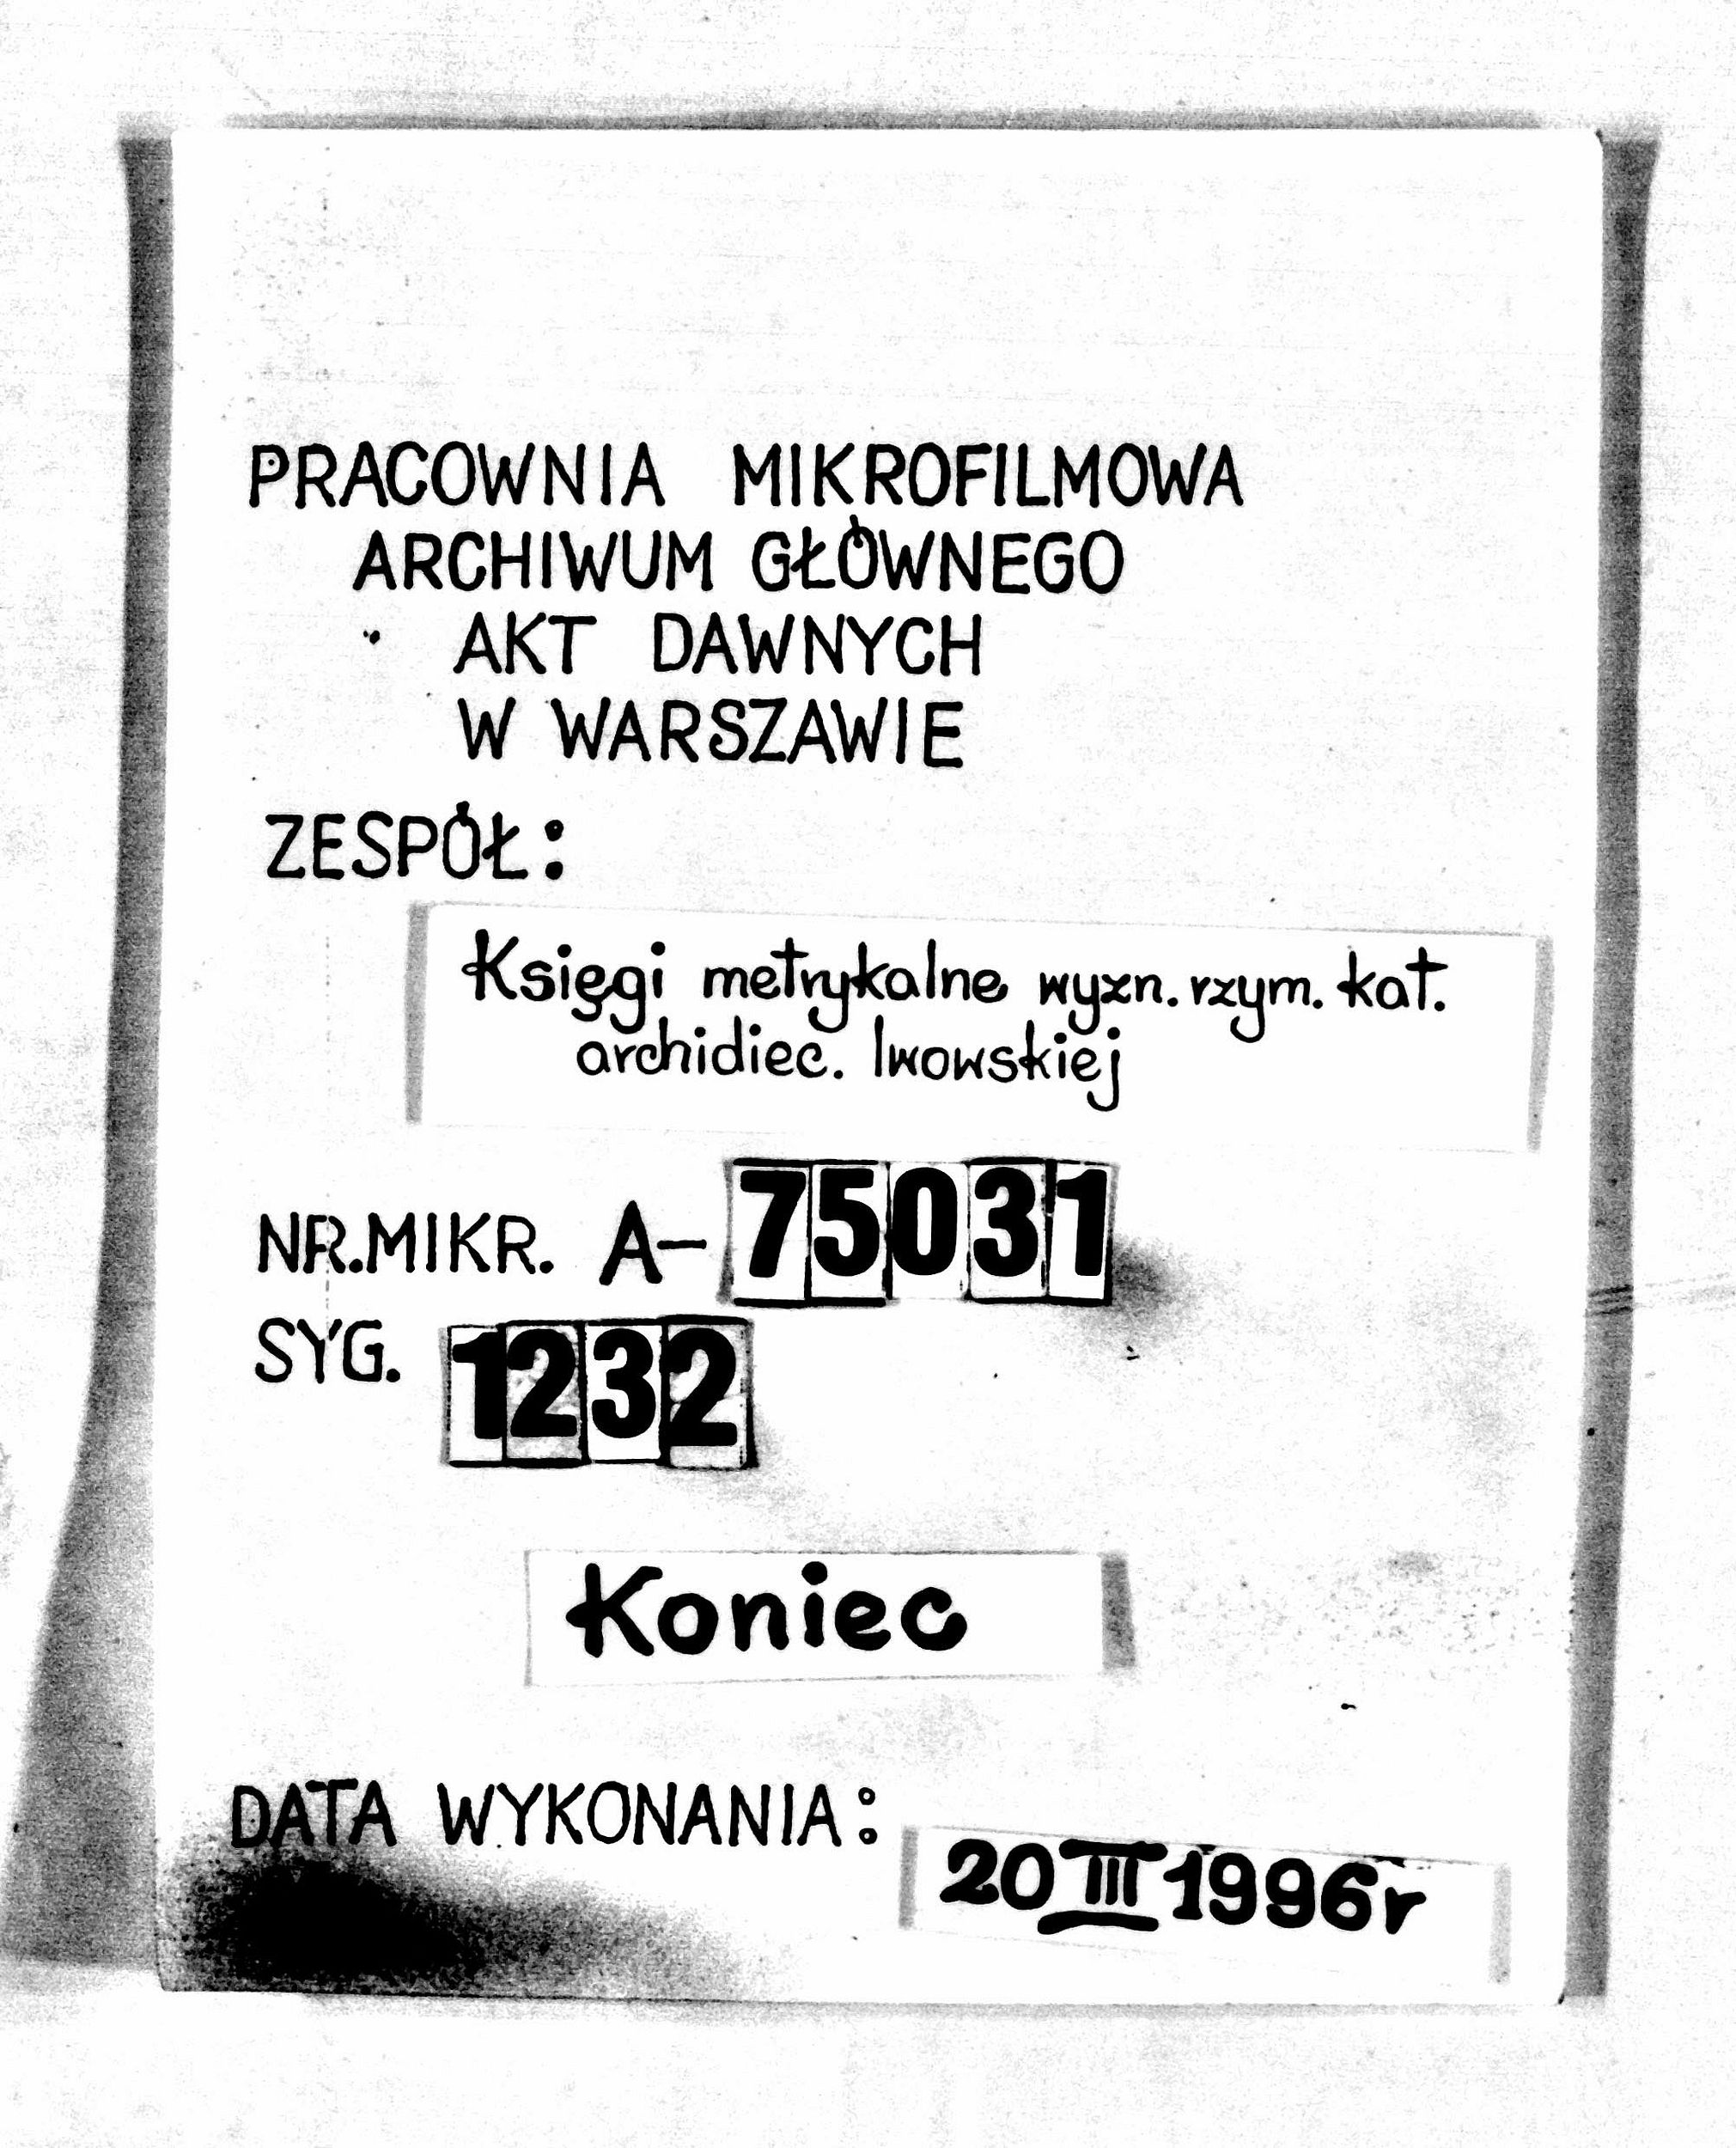 PRACOWNIA MIKROFILMOWA
ARCHIWUM GŁÓWNEGO
AKT DAWNYCH
W WARSZAWIE
ZESPÓŁ:
Księgi metrykalne wyzn. rzym. kat.
archidiec. lwowskiej
NR.MIKR. A-75031
SYG. 1232
Koniec
DATA WYKONANIA: 20 III 1996r